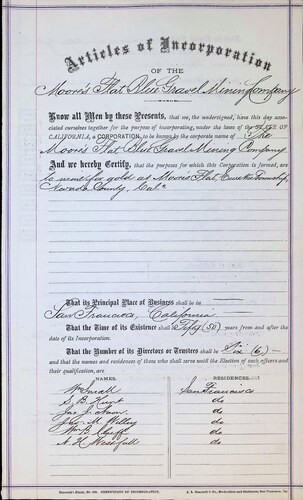 Articles of Incorporation
OF THE
Moore's Flat Blue Gravel Mining Company
Know all Men by these Presents, that we, the undersigned, have this day
associated ourselves together for the purpose of incorporating, under the laws of the STATE OF
CALIFORNIA, a CORPORATION, to be known by the corporate name of The
Moore's Flat Blue Gravel Mining Company
And we hereby Certify, that the purposes for which this Corporation is formed, are
to mine for gold at Moore's Flat, Eureka Township
Nevada County, Cal.
That its Principal Place of Business shall be in
San Francisco, California
That the Time of its Existence shall Fifty (50) years from and after the
date of its Incorporation.
That the Number of its Directors or Trustees shall be Six (6)
and that the names and residences of those who shall serve until the Election of such officers and
their qualification, are
NAMES. RESIDENCES.
Small San Francisco
S B Hunt do
Jas J do
Geo M Willey do
Wm B do
A H do
CERTIFICATE OF INCORPORATION.